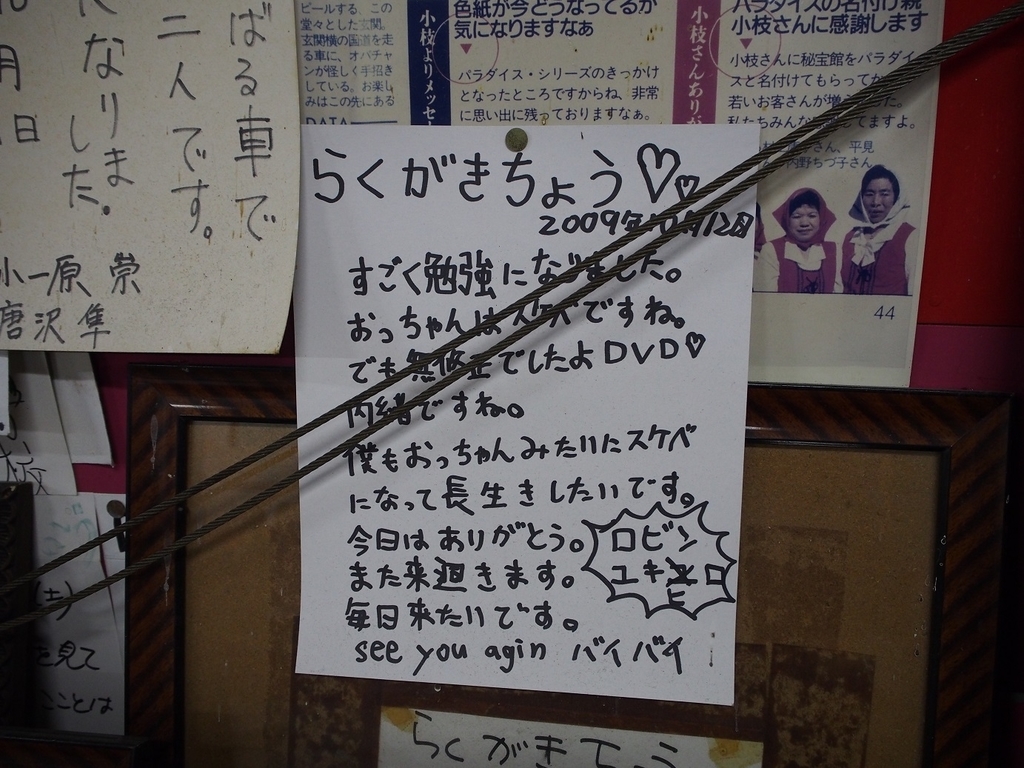 ばる車で
二人です。
になりま
した。
月
日
小一原 崇
唐沢 隼
ビールする、この
堂々とした玄関。
玄関横の国道を走
る車に、オバチャ
ンが怪しく手招き
している。お楽し
みはこの先にある
DATA
小枝よりメッセ
色紙が今どうなってるか
気になりますなぁ
パラダイス・シリーズのきっかけ
となったところですからね、非常
に思い出に残っておりますなぁ。
小枝さんあり
パラダイスの名付け親
小枝さんに感謝します
小枝さんに秘宝館をパラダイ
スと名付けてもらってか
若いお客さんが増え
私たちみんな
てますよ。
さん、平見
内野ちづ子さん
44
らくがきちょう♡♡
2009年10月12日
すごく勉強になりました。
おっちゃんはスケベですね。
でも無修正でしたよDVD♡
内緒ですね。
僕もおっちゃんみたいにスケベ
になって長生きしたいです。
今日はありがとう。
また来週きます。
毎日来たいです。
see you agin バイバイ
ロビン
ユキヒロ
(土)
を見て
ことは
らくがきちょう